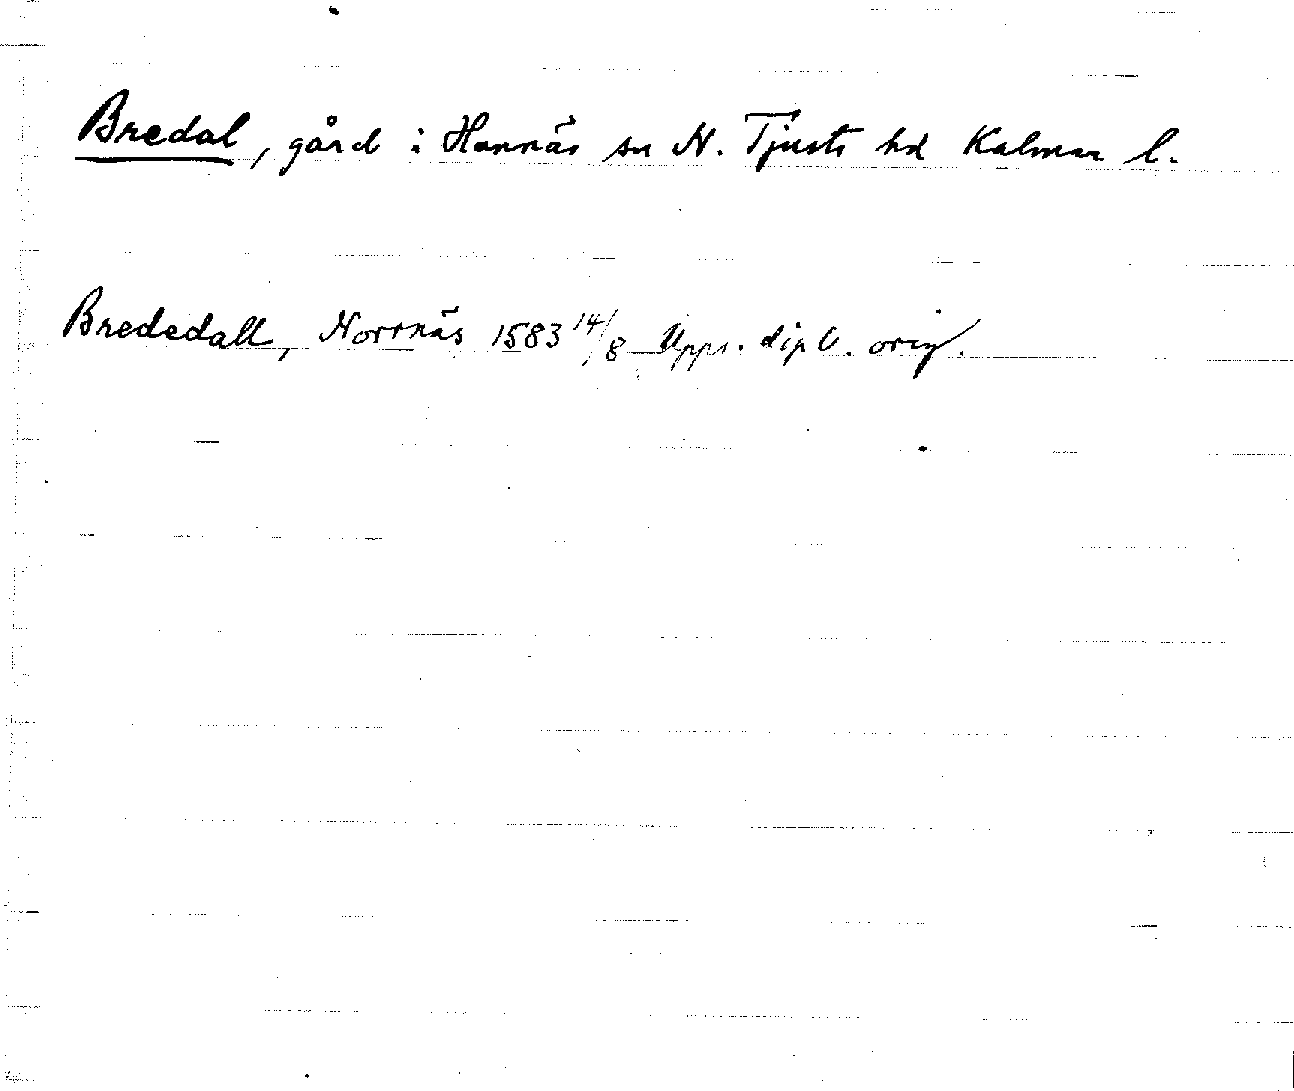 Bredal, gård i Hannäs sn N. Tjusts hd Kalmar l.
Brededall, Norrnäs 1583 14/8 Upps. dipl. orig.